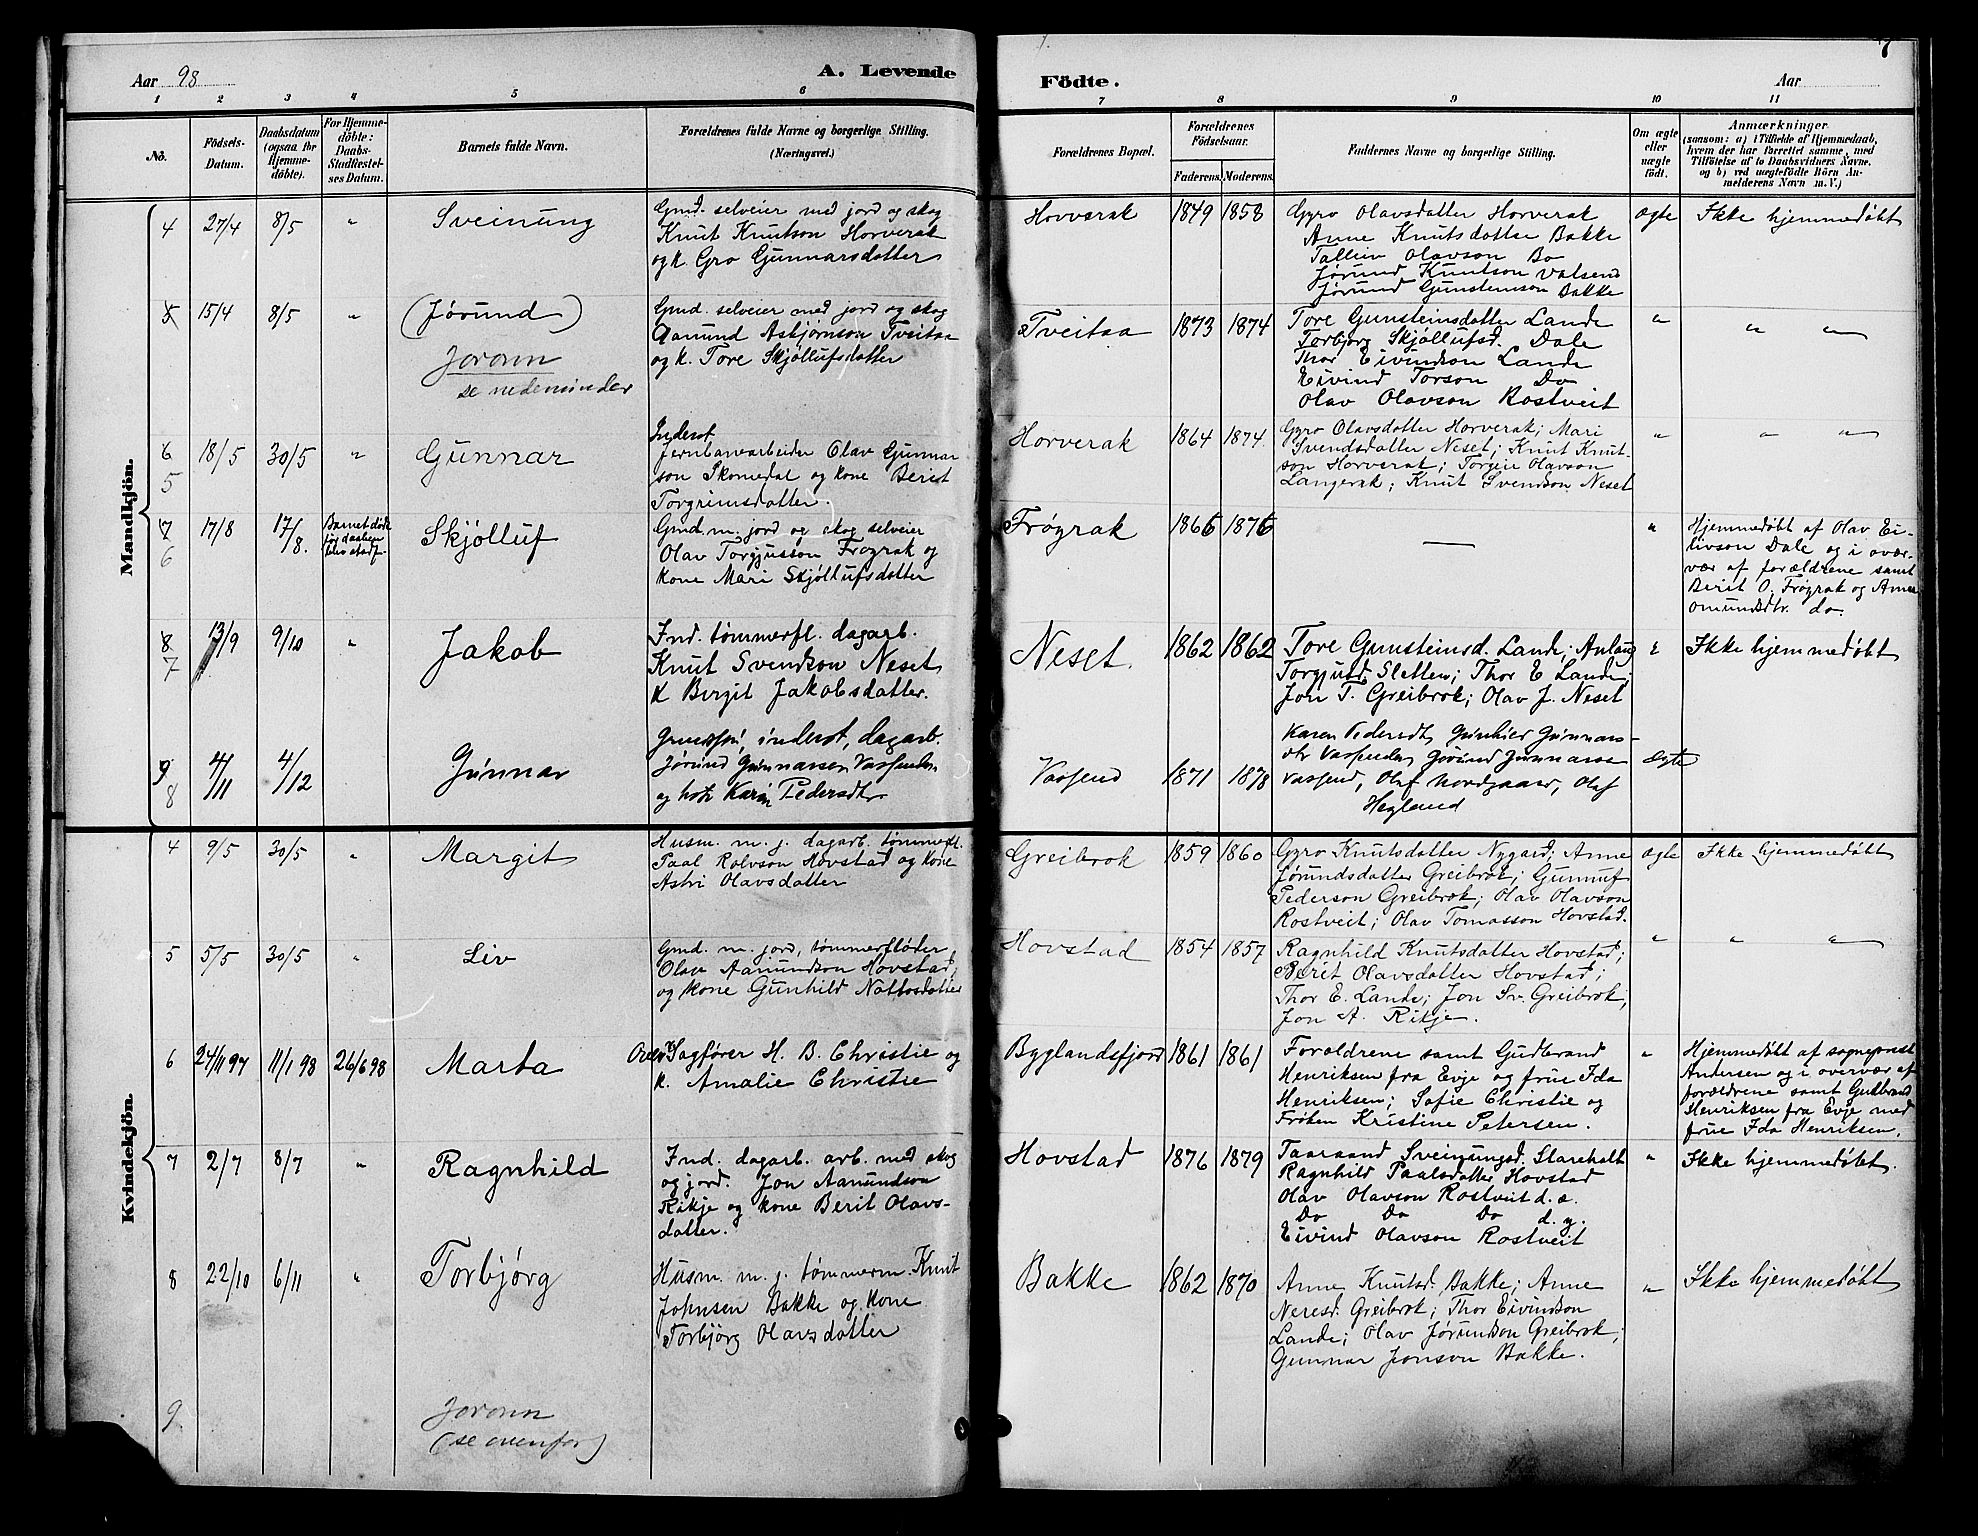 Aar 98
A. Levende
1 2 3 4 5 6
No.
Födsels-
Datum.
Daabsdatum
(ogsaa for
Hjemme-
döbte).
For Hjemme-
döbte:
Daabs-
Stadfæstel-
ses Datum.
Barnets fulde Navn.
Forældrenes fulde Navne og borgerlige Stilling.
(Næringsvei.)
Mandkjön.
4 27/4 8/5 " Sveinung
Gmd. selveier med jord og skog
Knut Knutson Horverak
og k. Gro Gunnarsdatter
5 15/4 8/5 " (Jørund)
Joronn
se nedenunder
Gmd. selveier med jord og skog
Aanund Asbjørnson Tveitaa
og k. Tore Skjøllufsdatter
6 18/5 30/5 " Gunnar
5
Inderst
Jernbanearbeider Olav Gunnar
son Skomedal og kone Berit
Torgrimsdatter.
7 17/8 17/8. Barnet døde
før daaben
blev stadf. Skjølluf
6
Gmd. m. jord og skog selveier
Olav Torgjusson Frøyrak og
kone Mari Skjøllufsdatter
8 13/9 9/10 " Jakob
7
Ind. tømmerfl. dagarb.
Knut Svendson Neset
k Birgit Jakobsdatter.
9 4/11 4/12 Gunnar
8
inderst, dagarb.
Jørund Gunnarsen Vassenden
og hstr Karen Pedersdtr
Kvindekjön.
4 9/5 30/5 " Margit
Husm. m. j. dagarb. tømmerfl.
Paal Rolvson Hovstad og kone
Astri Olavsdatter
5 5/5 30/5 " Liv
Gmd. m. jord, tømmerfløder
Olav Aanundson Hovstad,
og kone Gunhild Nottosdatter
6 24/11 97 11/1 98 26/6 98 Marta
Sagfører H. B. Christie og
k. Amalie Christie
7 2/7 8/7 " Ragnhild
Ind. dagarb. arb. med skog
og jord. Jon Aanundson
Rikje og kone Berit Olavs-
datter.
8 22/10 6/11 " Torbjørg
Husm. m. j. tømmerm. Knut
Johnsen Bakke og kone
Torbjørg Olavsdatter
9 Joronn
(se ovenfor)
7
Födte.
Aar
7 8 9 10 11
Forældrenes Bopæl.
Forældrenes
Födselsaar.
Faderens. Moderens.
Faddernes Navne og borgerlige Stilling.
Om ægte
eller
uægte
födt.
Anmærkninger
(saasom: a) i Tilfælde af Hjemmedaab,
hvem der har forrettet samme, med
Tilföielse af to Daabsvidners Navne.
og b) ved uægtefödte Börn An-
melderens Navn m. V.)
Hovverak 1849 1858
Gyro Olavsdatter Horverak
Anne Knutsdatter Bakke
Talleiv Olavson Do
Jørund Knutson Valsend
Jørund Gunsteinson Bakke
ægte Ikke hjemmedøbt
Tveitaa 1873 1874
Tore Gunsteinsdatter Lande
Torbjørg Skjøllufsd. Dale
Thor Eivindson Lande
Eivind Torson Do
Olav Olavson Rostveit
" " "
Horverak 1864 1874
Gyro Olavsdatter Horverak; Mari
Svendsdatter Neset; Knut Knut-
son Horverak; Torgeir Olavson
Langerak; Knut Svendson Neset
" " "
Frøyrak 1866 1876
—
" Hjemmedøbt af Olav Ei-
livson Dale og i over-
vær af forældrene samt
Berit O. Frøyrak og Anne
Omundsdtr. do.
Neset. 1862 1862
Tore Gunsteinsd. Lande; Anlaug
Torgjusd. Sletten; Thor E Lande;
Jon T. Greibrok; Olav J. Neset
" Ikke hjemmedøbt
Vassend 1871 1878
Karen Pedersdt, Gunhild Gunnars-
dtr Vassenden Jørund Gunnarsen
Vassend, Olaf Nordgaard, Olaf
Hegland
Ægte
Greibrok 1859 1860
Gyro Knutsdatter Nygard; Anne
Jørundsdatter Greibrok; Gunnuf
Pederson Greibrok; Olav Olavson
Rostveit; Olav Tomasson Hovstad.
ægte Ikke hjemmedøbt
Hovstad 1854 1857
Ragnhild Knutsdatter Hovstad;
Berit Olavsdatter Hovstad;
Thor E. Lande; Jon Sv. Greibrok;
Jon A. Rikje.
" " "
Byglandsfjord 1861 1861
Forældrene samt Gudbrand
Henriksen fra Evje og frue Ida
Henriksen; Sofie Christie og
Frøken Kristine Petersen.
" Hjemmedøbt af sogneprest
Andersen og i overvær af
forældrene samt Gudbrand
Henriksen fra Evje med
frue Ida Henriksen.
Hovstad 1876 1879
Taaraand Sveinungsd. Skarehalt
Ragnhild Paalsdatter Hovstad
Olav Olavson Rostveit d. æ.
Do Do Do d. y.
Eivind Olavson Rostveit
" Ikke hjemmedøbt.
Bakke 1862 1870
Anne Knutsd. Bakke; Anne
Neresd. Greibrok; Thor Eivindson
Lande; Olav Jørundson Greibrok;
Gunnar Jonson Bakke.
" Ikke hjemmedøbt